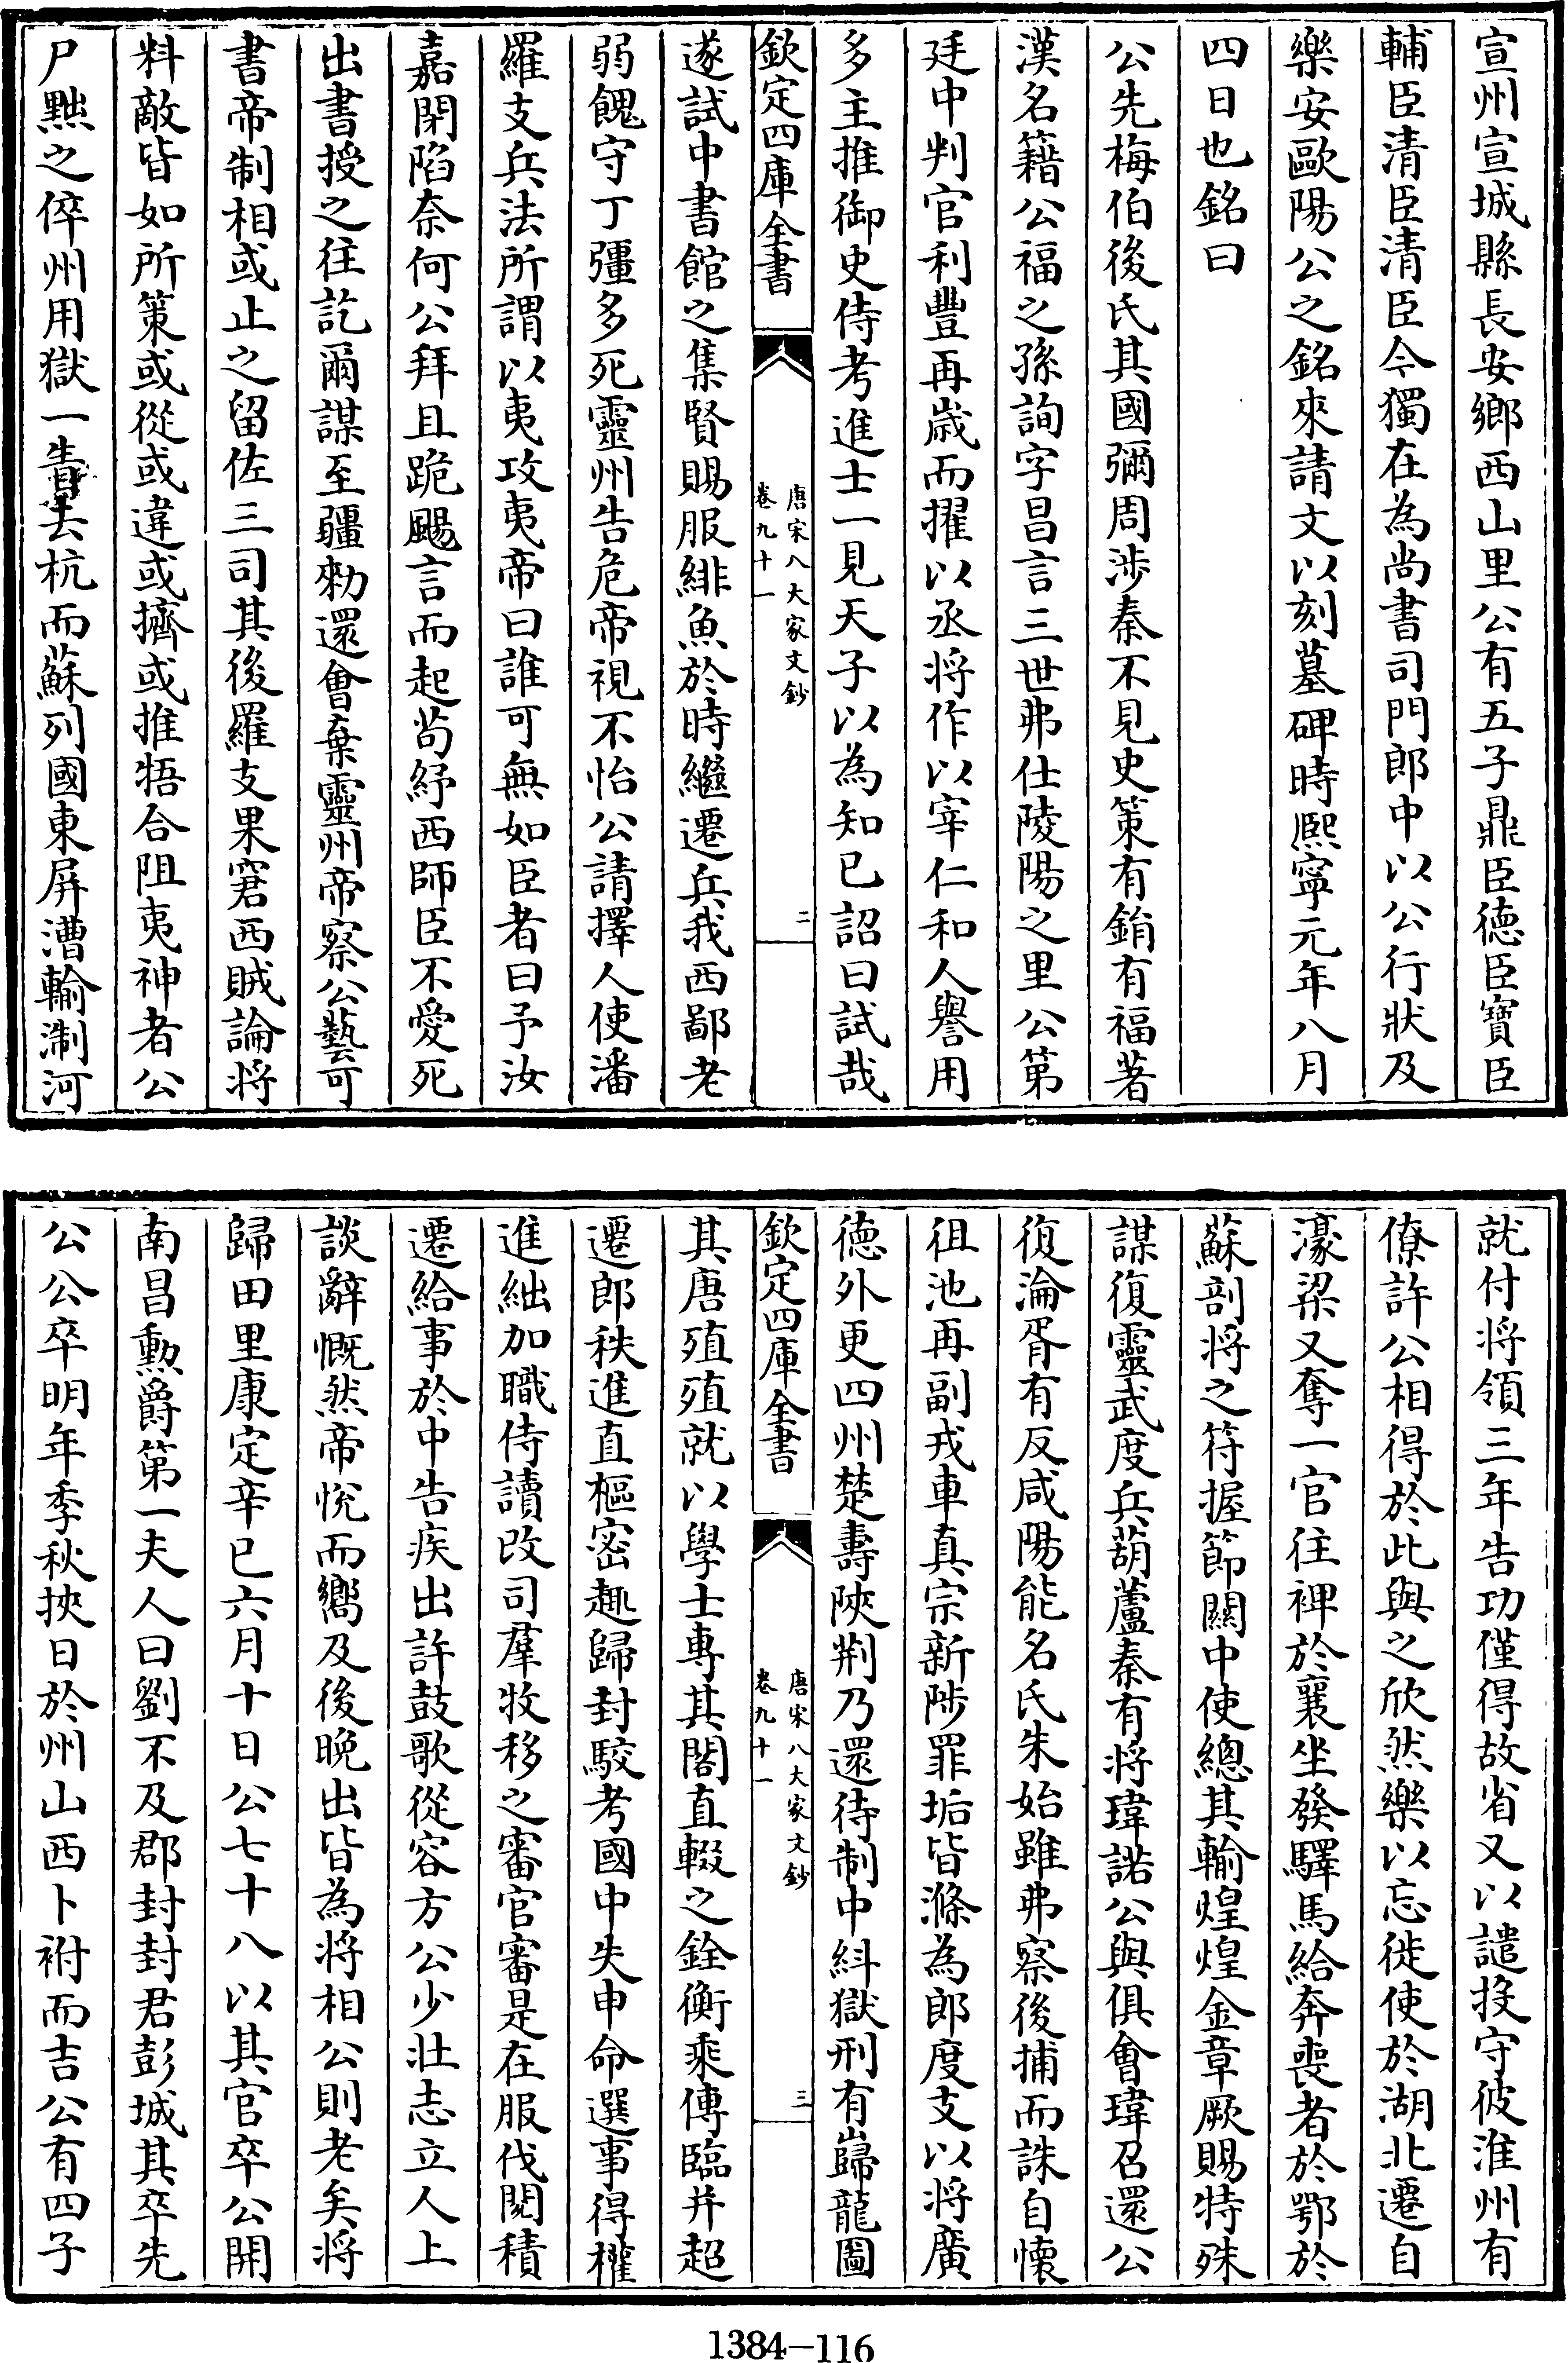 宣州宣城縣長安鄉西山里公有五子鼎臣德臣寶臣
輔臣清臣清臣今獨在為尚書司門郎中以公行狀及
樂安歐陽公之銘來請文以刻墓碑時熙寧元年八月
四日也銘曰
公先梅伯後氏其國彌周涉秦不見史策有鋗有福著
漢名籍公福之孫詢字昌言三世弗仕陵陽之里公第
廷中判官利豐再歲而擢以丞將作以宰仁和人譽用
多主推御史侍考進士一見天子以為知已詔曰試哉
欽定四庫全書
唐宋八大家文鈔
卷九十一
二
遂試中書館之集賢賜服緋魚於時繼遷兵我西鄙老
弱餽守丁彊多死靈州告危帝視不怡公請擇人使潘
羅支兵法所謂以夷攻夷帝曰誰可無如臣者曰予汝
嘉閉陷奈何公拜且跪颺言而起茍紓西師臣不愛死
出書授之往訖爾謀至疆勑還會棄靈州帝察公藝可
書帝制相或止之留佐三司其後羅支果窘西賊論將
料敵皆如所策或從或違或擠或推牾合阻夷神者公
尸黜之倅州用獄一眚去杭而蘇列國東屏漕輸淛河
就付將領三年告功僅得故省又以譴投守彼淮州有
僚許公相得於此與之欣然樂以忘徙使於湖北遷自
濠梁又奪一官往裨於襄坐發驛馬給奔喪者於鄂於
蘇剖將之符握節關中使總其輸煌煌金章厥賜特殊
謀復靈武度兵葫蘆秦有將瑋諾公與俱會瑋召還公
復淪胥有反咸陽能名氏朱始雖弗察後捕而誅自懷
徂池再副戎車真宗新陟罪垢皆滌為郎度支以將廣
德外更四州楚壽陝荆乃還待制中糾獄刑有巋龍圖
欽定四庫全書
唐宋八大家文鈔
卷九十一
三
其唐殖殖就以學士專其閣直輟之銓衡乘傳臨并超
遷郎秩進直樞密趣歸封駮考國中失申命選事得權
進絀加職侍讀改司羣牧移之審官審是在服伐閱積
遷給事於中告疾出許鼓歌從容方公少壯志立人上
談辭慨然帝悅而嚮及後晚出皆為將相公則老矣將
歸田里康定辛巳六月十日公七十八以其官卒公開
南昌勲爵第一夫人曰劉不及郡封封君彭城其卒先
公公卒明年季秋挾日於州山西卜祔而吉公有四子
1384—116